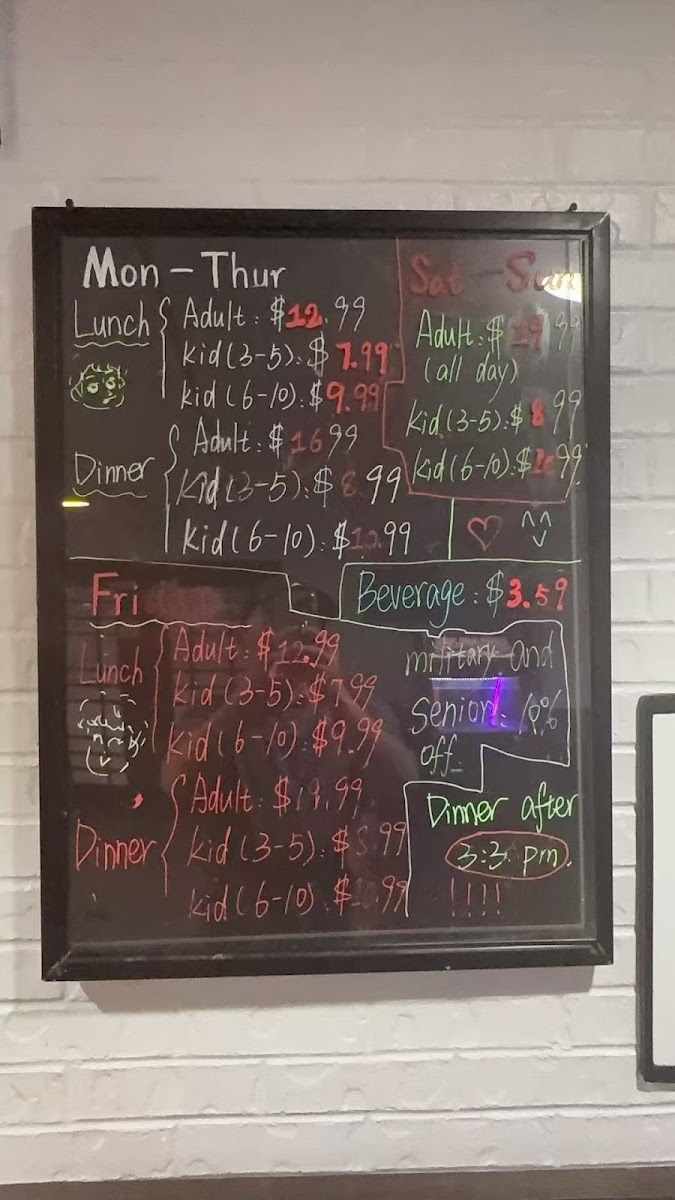 Mon - Thur
Lunch
Adult: $12.99
Kid (3-5): $7.99
Kid (6-10): $9.99
Dinner
Adult: $16.99
Kid (3-5): $8.99
Kid (6-10): $10.99
Sat - Sun
Adult: $19.99
(all day)
Kid (3-5): $8.99
Kid (6-10): $10.99
Beverage: $3.59
Fri
Lunch
Adult: $12.99
Kid (3-5): $7.99
Kid (6-10): $9.99
Dinner
Adult: $19.99
Kid (3-5): $8.99
Kid (6-10): $10.99
military and
Senior: 10%
off
Dinner after
3:3 pm.
!!!!